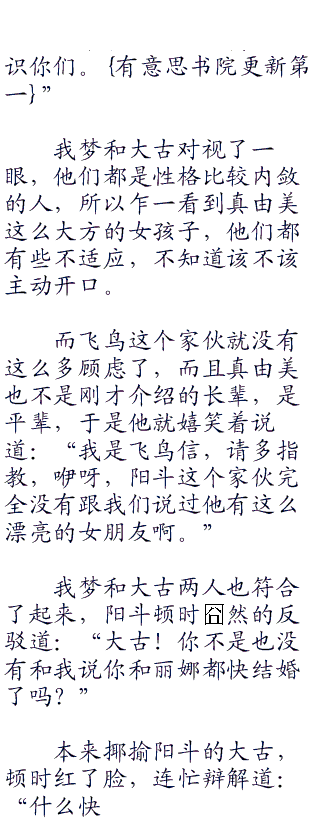 识你们。 {有意思书院更新第
一}”
我梦和大古对视了一
眼，他们都是性格比较内敛
的人，所以乍一看到真由美
这么大方的女孩子，他们都
有些不适应，不知道该不该
主动开口。
而飞鸟这个家伙就没有
这么多顾虑了，而且真由美
也不是刚才介绍的长辈，是
平辈，于是他就嬉笑着说
道：“我是飞鸟信，请多指
教，咿呀，阳斗这个家伙完
全没有跟我们说过他有这么
漂亮的女朋友啊。”
我梦和大古两人也符合
了起来，阳斗顿时囧然的反
驳道：“大古！你不是也没
有和我说你和丽娜都快结婚
了吗？”
本来揶揄阳斗的大古，
顿时红了脸，连忙辩解道：
“什么快